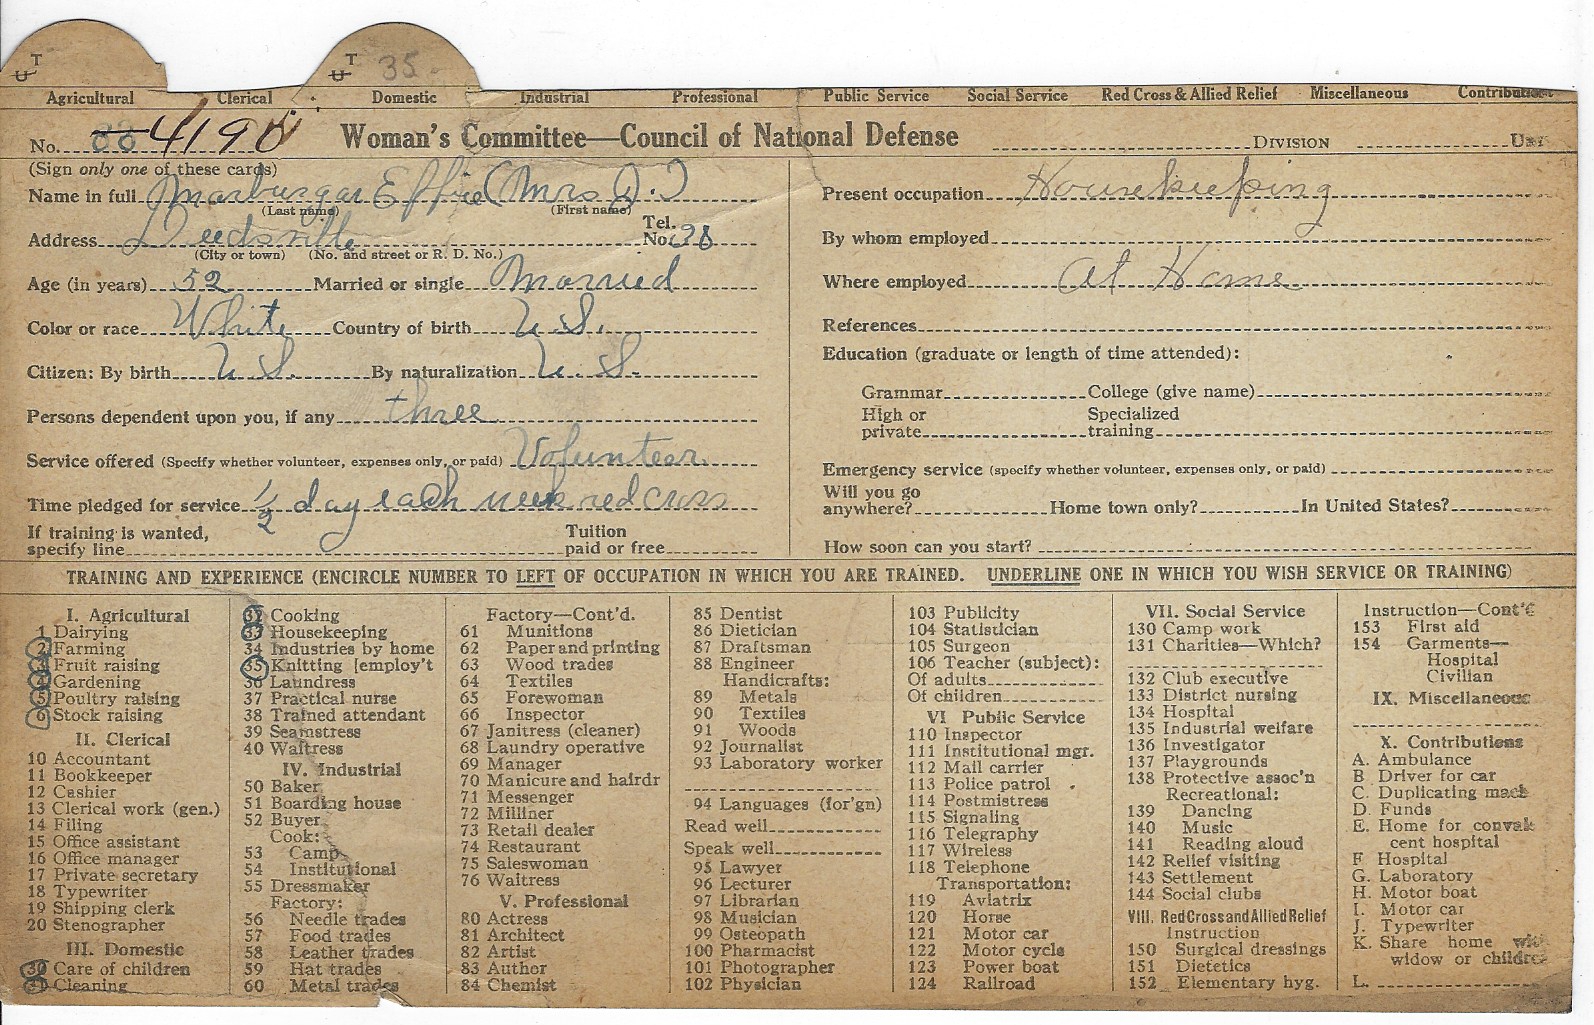 T
U
T
U
35
Agricultural Clerical Domestic Industrial Professional Public Service Social Service Red Cross & Allied Relief Miscellaneous
No. 4190 Woman's Committee—Council of National Defense DIVISION
(Sign only one of these cards)
Name in full Marburgar Effie (Mrs J.)
(Last name) (First name)
Address Deedsville Tel. No. 38
(City or town) (No. and street or R. D. No.)
Age (in years) 52 Married or single Married
Color or race White Country of birth U.S.
Citizen: By birth U.S. By naturalization U.S.
Persons dependent upon you, if any three
Service offered (Specify whether volunteer, expenses only, or paid) Volunteer
Time pledged for service 1/2 day each week red cross
If training is wanted, specify line Tuition paid or free
Present occupation Housekeeping
By whom employed
Where employed At Home
References
Education (graduate or length of time attended):
Grammar College (give name)
High or private Specialized training
Emergency service (specify whether volunteer, expenses only, or paid)
Will you go anywhere? Home town only? In United States?
How soon can you start?
TRAINING AND EXPERIENCE (ENCIRCLE NUMBER TO LEFT OF OCCUPATION IN WHICH YOU ARE TRAINED. UNDERLINE ONE IN WHICH YOU WISH SERVICE OR TRAINING)
I. Agricultural
1 Dairying
2 Farming
3 Fruit raising
4 Gardening
5 Poultry raising
6 Stock raising
II. Clerical
10 Accountant
11 Bookkeeper
12 Cashier
13 Clerical work (gen.)
14 Filing
15 Office assistant
16 Office manager
17 Private secretary
18 Typewriter
19 Shipping clerk
20 Stenographer
III. Domestic
30 Care of children
31 Cleaning
32 Cooking
33 Housekeeping
34 Industries by home
35 Knitting [employ't
36 Laundress
37 Practical nurse
38 Trained attendant
39 Seamstress
40 Waitress
IV. Industrial
50 Baker
51 Boarding house
52 Buyer
Cook:
53 Camp
54 Institutional
55 Dressmaker
Factory:
56 Needle trades
57 Food trades
58 Leather trades
59 Hat trades
60 Metal trades
Factory—Cont'd.
61 Munitions
62 Paper and printing
63 Wood trades
64 Textiles
65 Forewoman
66 Inspector
67 Janitress (cleaner)
68 Laundry operative
69 Manager
70 Manicure and hairdr
71 Messenger
72 Milliner
73 Retail dealer
74 Restaurant
75 Saleswoman
76 Waitress
V. Professional
80 Actress
81 Architect
82 Artist
83 Author
84 Chemist
85 Dentist
86 Dietician
87 Draftsman
88 Engineer
Handicrafts:
89 Metals
90 Textiles
91 Woods
92 Journalist
93 Laboratory worker
94 Languages (for'gn)
Read well
Speak well
95 Lawyer
96 Lecturer
97 Librarian
98 Musician
99 Osteopath
100 Pharmacist
101 Photographer
102 Physician
103 Publicity
104 Statistician
105 Surgeon
106 Teacher (subject):
Of adults
Of children
VI Public Service
110 Inspector
111 Institutional mgr.
112 Mail carrier
113 Police patrol
114 Postmistress
115 Signaling
116 Telegraphy
117 Wireless
118 Telephone
Transportation:
119 Aviatrix
120 Horse
121 Motor car
122 Motor cycle
123 Power boat
124 Railroad
VII. Social Service
130 Camp work
131 Charities—Which?
132 Club executive
133 District nursing
134 Hospital
135 Industrial welfare
136 Investigator
137 Playgrounds
138 Protective assoc'n
Recreational:
139 Dancing
140 Music
141 Reading aloud
142 Relief visiting
143 Settlement
144 Social clubs
VIII. Red Cross and Allied Relief
Instruction
150 Surgical dressings
151 Dietetics
152 Elementary hyg.
Instruction—Cont'd
153 First aid
154 Garments—
Hospital
Civilian
IX. Miscellaneous
X. Contributions
A. Ambulance
B. Driver for car
C. Duplicating mach
D. Funds
E. Home for conval
cent hospital
F Hospital
G. Laboratory
H. Motor boat
I. Motor car
J. Typewriter
K. Share home with
widow or children
L.